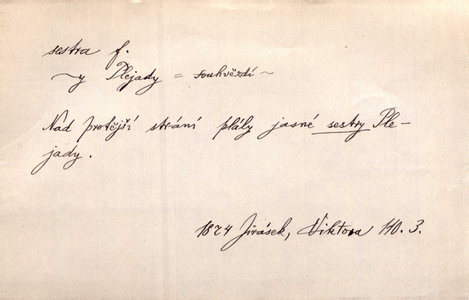 sestra f.
~y Plejady = souhvězdí ~
Nad protější strání plály jasné sestry Ple-
jady.
1874 Jirásek, Viktora 110. 3.